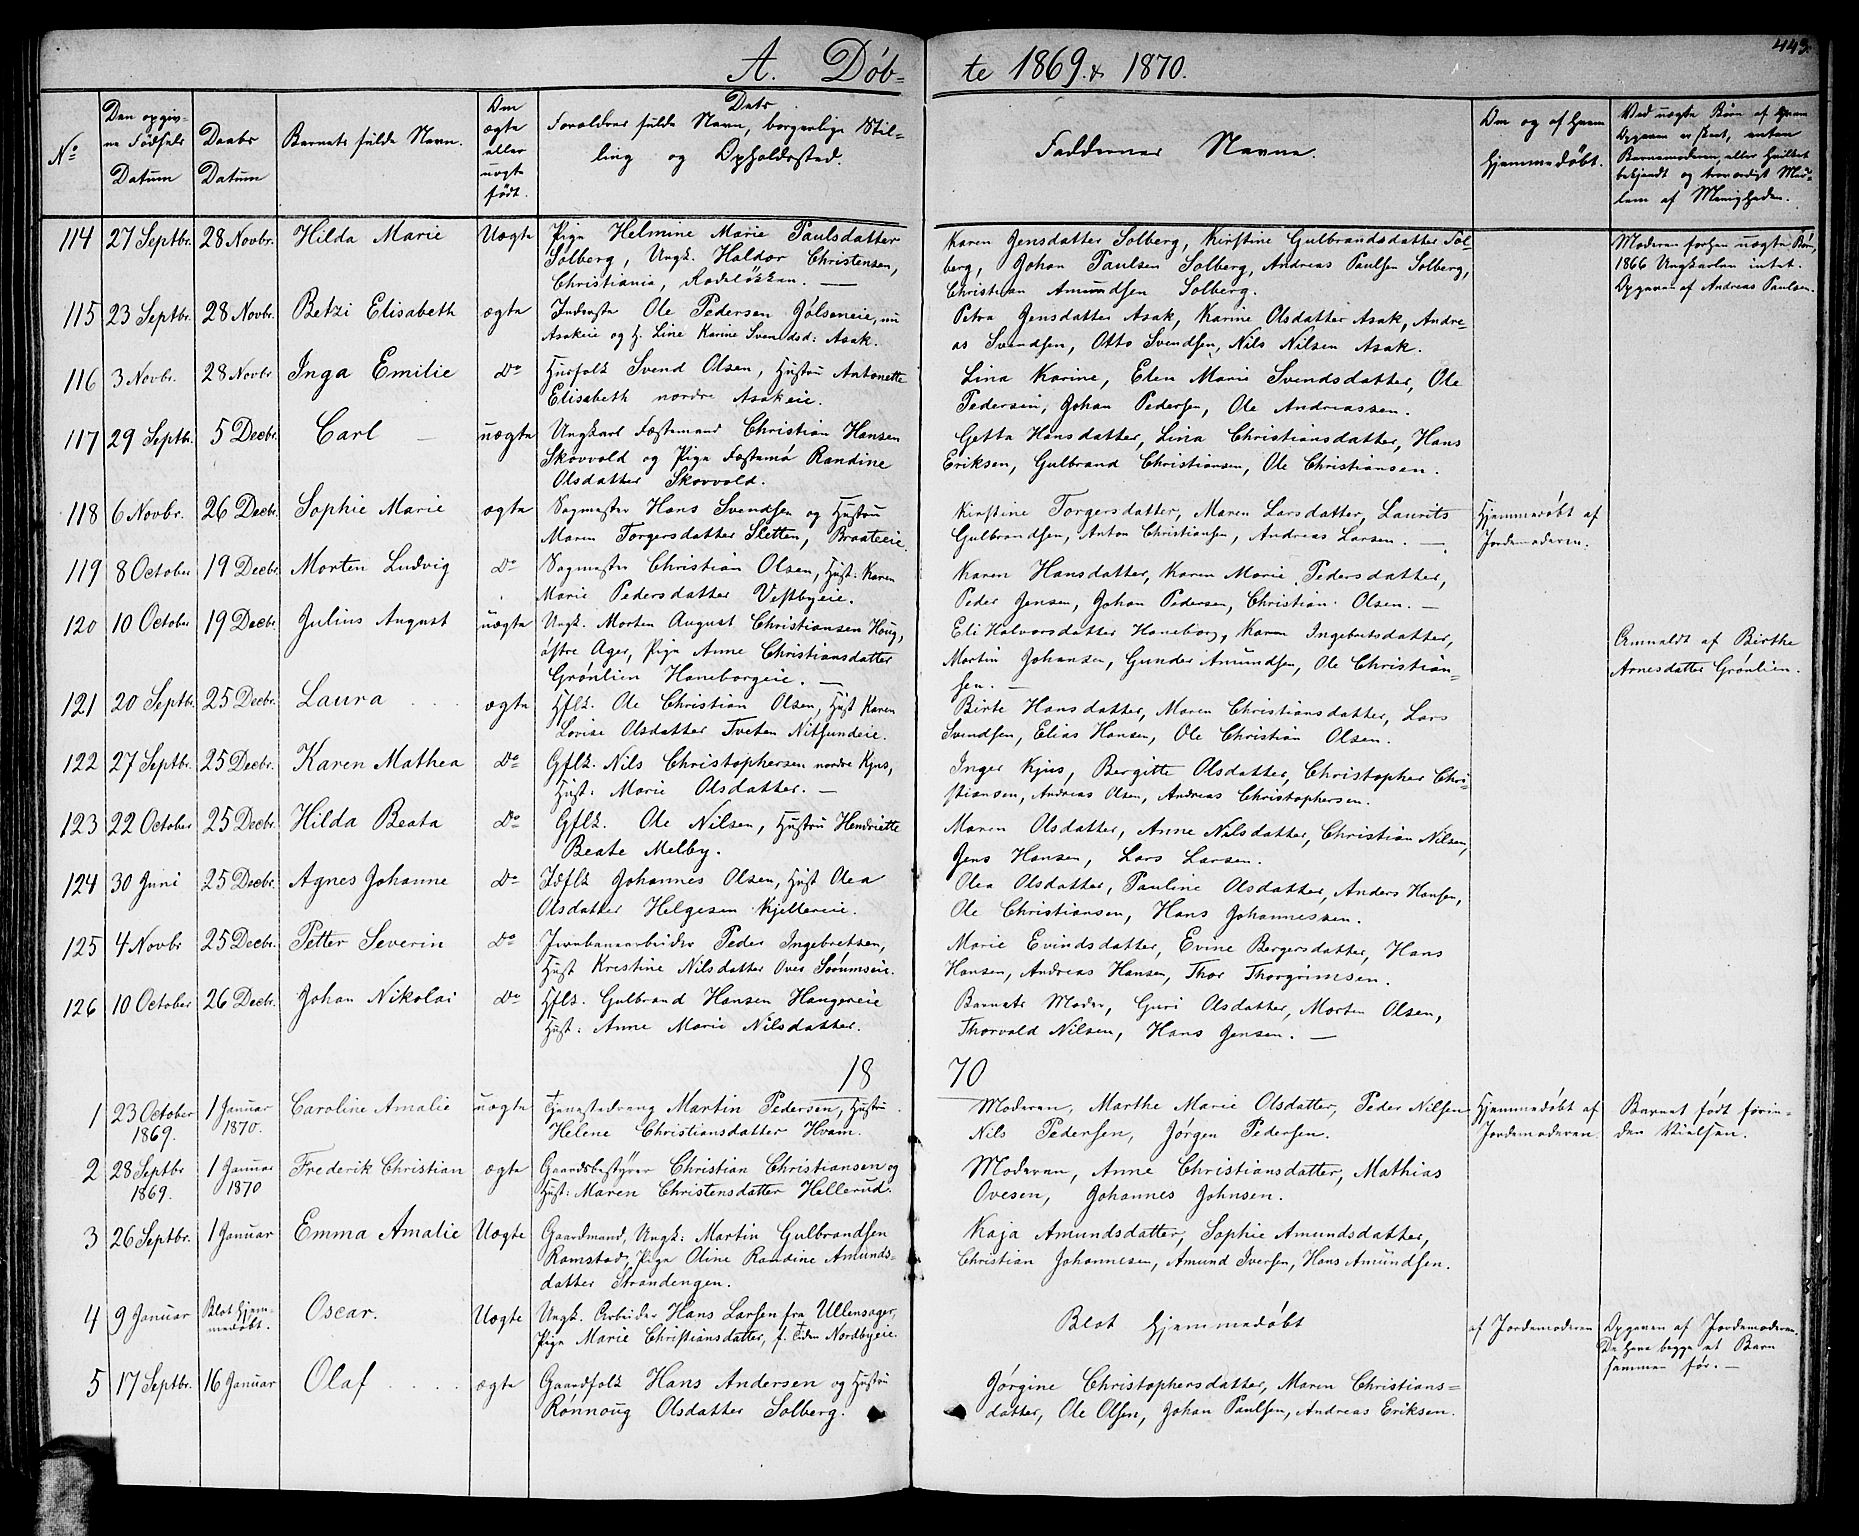 443.
A. Døb-
te 1869. & 1870.
No
Den opgiv-
ne Fødsels
Datum
Daabs
Datum
Barnets fulde Navn.
Om
ægte
eller
uægte
født.
Dets
Forældres fulde Navn, borgerlige Stil-
ling og Opholdssted.
Faddernes Navne.
Om og af hvem
hjemmedøbt.
Ved uægte Børn af hvem
Opgaven er skeet, enten
Barnemoderen, eller hvilket
bekjendt og troværdigt Med-
lem af Menigheden.
114 27 Septbr. 28 Novbr. Hilda Marie Uægte Pige Helmine Marie Paulsdatter
Solberg, Ungk. Haldor Christensen,
Christiania, Rodeløkken. —
Karen Jensdatter Solberg, Kirstine Gulbrandsdatter Sol-
berg, Johan Paulsen Solberg, Andreas Paulsen Solberg,
Christian Amundsen Solberg.
Moderen forhen uægte Børn,
1866 Ungkarlen intet.
Opgaven af Andreas Paulsen.
115 23 Septbr. 28 Novbr. Betzi Elisabeth ægte Inderste Ole Pedersen Gjølseneie, nu
Asakeie og H. Line Karine Svendsd: Asak.
Petra Jensdatter Asak, Karine Olsdatter Asak, Andre-
as Svendsen, Otto Svendsen, Nils Nilsen Asak.
116 3 Novbr. 28 Novbr Inga Emilie Do Husfolk Svend Olsen, Hustru Antonette
Elisabeth nordre Asakeie.
Lina Karine, Elen Marie Svendsdatter, Ole
Pedersen, Johan Pedersen, Ole Andreassen.
117 29 Septbr. 5 Decbr. Carl — uægte Ungkarl Fæstemand Christian Hansen
Skovvold og Pige Fæstemø Randine
Olsdatter Skovvold.
Getta Hansdatter, Lina Christiansdatter, Hans
Eriksen, Gulbrand Christiansen, Ole Christiansen.
118 6 Novbr. 26 Decbr. Sophie Marie ægte Sagmester Hans Svendsen og Hustru
Maren Torgersdatter Sletten, Braateeie.
Kirstine Torgersdatter, Maren Larsdatter, Laurits
Gulbrandsen, Anton Christiansen, Andreas Larsen. —
Hjemmedøbt af
Jordemoderen.
119 8 October 19 Decbr. Morten Ludvig Do Sagmester Christian Olsen, Hust: Karen
Marie Pedersdatter Vestbyeie.
Karen Hansdatter, Karen Marie Pedersdatter,
Peder Jensen, Johan Pedersen, Christian Olsen. —
120 10 October 19 Decbr. Julius August uægte Ungk. Morten August Christiansen Houg,
østre Ager, Pige Anne Christiansdatter
Grønlien Haneborgeie. —
Eli Halvorsdatter Haneborg, Karen Ingebretsdatter,
Martin Johansen, Gunder Amundsen, Ole Christian-
sen. —
Anmeldt af Birthe
Arnesdatter Grønlien.
121 20 Septbr. 25 Decbr. Laura ægte Hflk. Ole Christian Olsen, Hust Karen
Lovise Olsdatter Tveten Nitsundeie.
Birte Hansdatter, Maren Christiansdatter, Lars
Svendsen, Elias Hansen, Ole Christian Olsen.
122 27 Septbr. 25 Decbr. Karen Mathea Do Gflk. Nils Christophersen nordre Kjus,
Hust: Marie Olsdatter. —
Inger Kjus, Bergitte Olsdatter, Christopher Chri-
stiansen, Andreas Olsen, Andreas Christophersen.
123 22 October 25 Decbr. Hilda Beata Do Gflk. Ole Nilsen, Hustru Henriette
Beate Melby.
Maren Olsdatter, Anne Nilsdatter, Christian Nilsen,
Jens Hansen, Lars Larsen.
124 30 Juni 25 Decbr. Agnes Johanne Do Idflk Johannes Olsen, Hust Olea
Olsdatter Helgesen Kjellereie.
Olea Olsdatter, Pauline Olsdatter, Anders Hansen,
Ole Christiansen, Hans Johannessen.
125 4 Novbr 25 Decbr. Petter Severin Do Jernbanearbeider Peder Ingebretsen,
Hust Krestine Nilsdatter Oves Sørumseie.
Marie Evindsdatter, Evine Bergersdatter, Hans
Hansen, Andreas Hansen, Thor Thorgrimsen.
126 10 October 26 Decbr. Johan Nikolai Do Hflk. Gulbrand Hansen Haugereie
Hust: Anne Marie Nilsdatter.
Barnets Moder, Guri Olsdatter, Morten Olsen,
Thorvald Nilsen, Hans Jensen. —
18 70
1 23 October 1869. 1 Januar 1870. Caroline Amalie uægte Tjenestedreng Martin Pedersen, Hustru
Helene Christiansdatter Hvam.
Moderen, Marthe Marie Olsdatter, Peder Nilsen
Nils Pedersen, Jørgen Pedersen.
Hjemmedøbt af
Jordemoderen.
Barnet født førin-
den Vielsen.
2 28 Septbr 1869. 1 Januar 1870 Frederik Christian ægte Gaardsbestyrer Christian Christiansen og
Hust: Maren Christensdatter Hellerud.
Moderen, Anne Christiansdatter, Mathias
Ovesen, Johannes Johnsen.
3 26 Septbr. 1 Januar Emma Amalie Uægte Gaardmand, Ungk: Martin Gulbrandsen
Ramstad, Pige Oline Randine Amunds-
datter Strandengen.
Kaja Amundsdatter, Sophie Amundsdatter,
Christian Johannesen, Amund Iversen, Hans Amundsen.
4 9 Januar Blot hjem-
medøbt. Oscar. Uægte Ungk. Arbeider Hans Larsen fra Ullensager,
Pige Marie Christiansdatter, f. Eiden Nordbyeie.
Blot hjemmedøbt
af Jordemoderen
Opgaven af Jordemoderen.
De have begge et Barn
sammen før. —
5 17 Septbr. 16 Januar Olaf ægte Gaardfolk Hans Andersen og Hustru
Rønnoug Olsdatter Solberg.
Jørgine Christophersdatter, Maren Christians-
datter, Ole Olsen, Johan Paulsen, Andreas Eriksen.